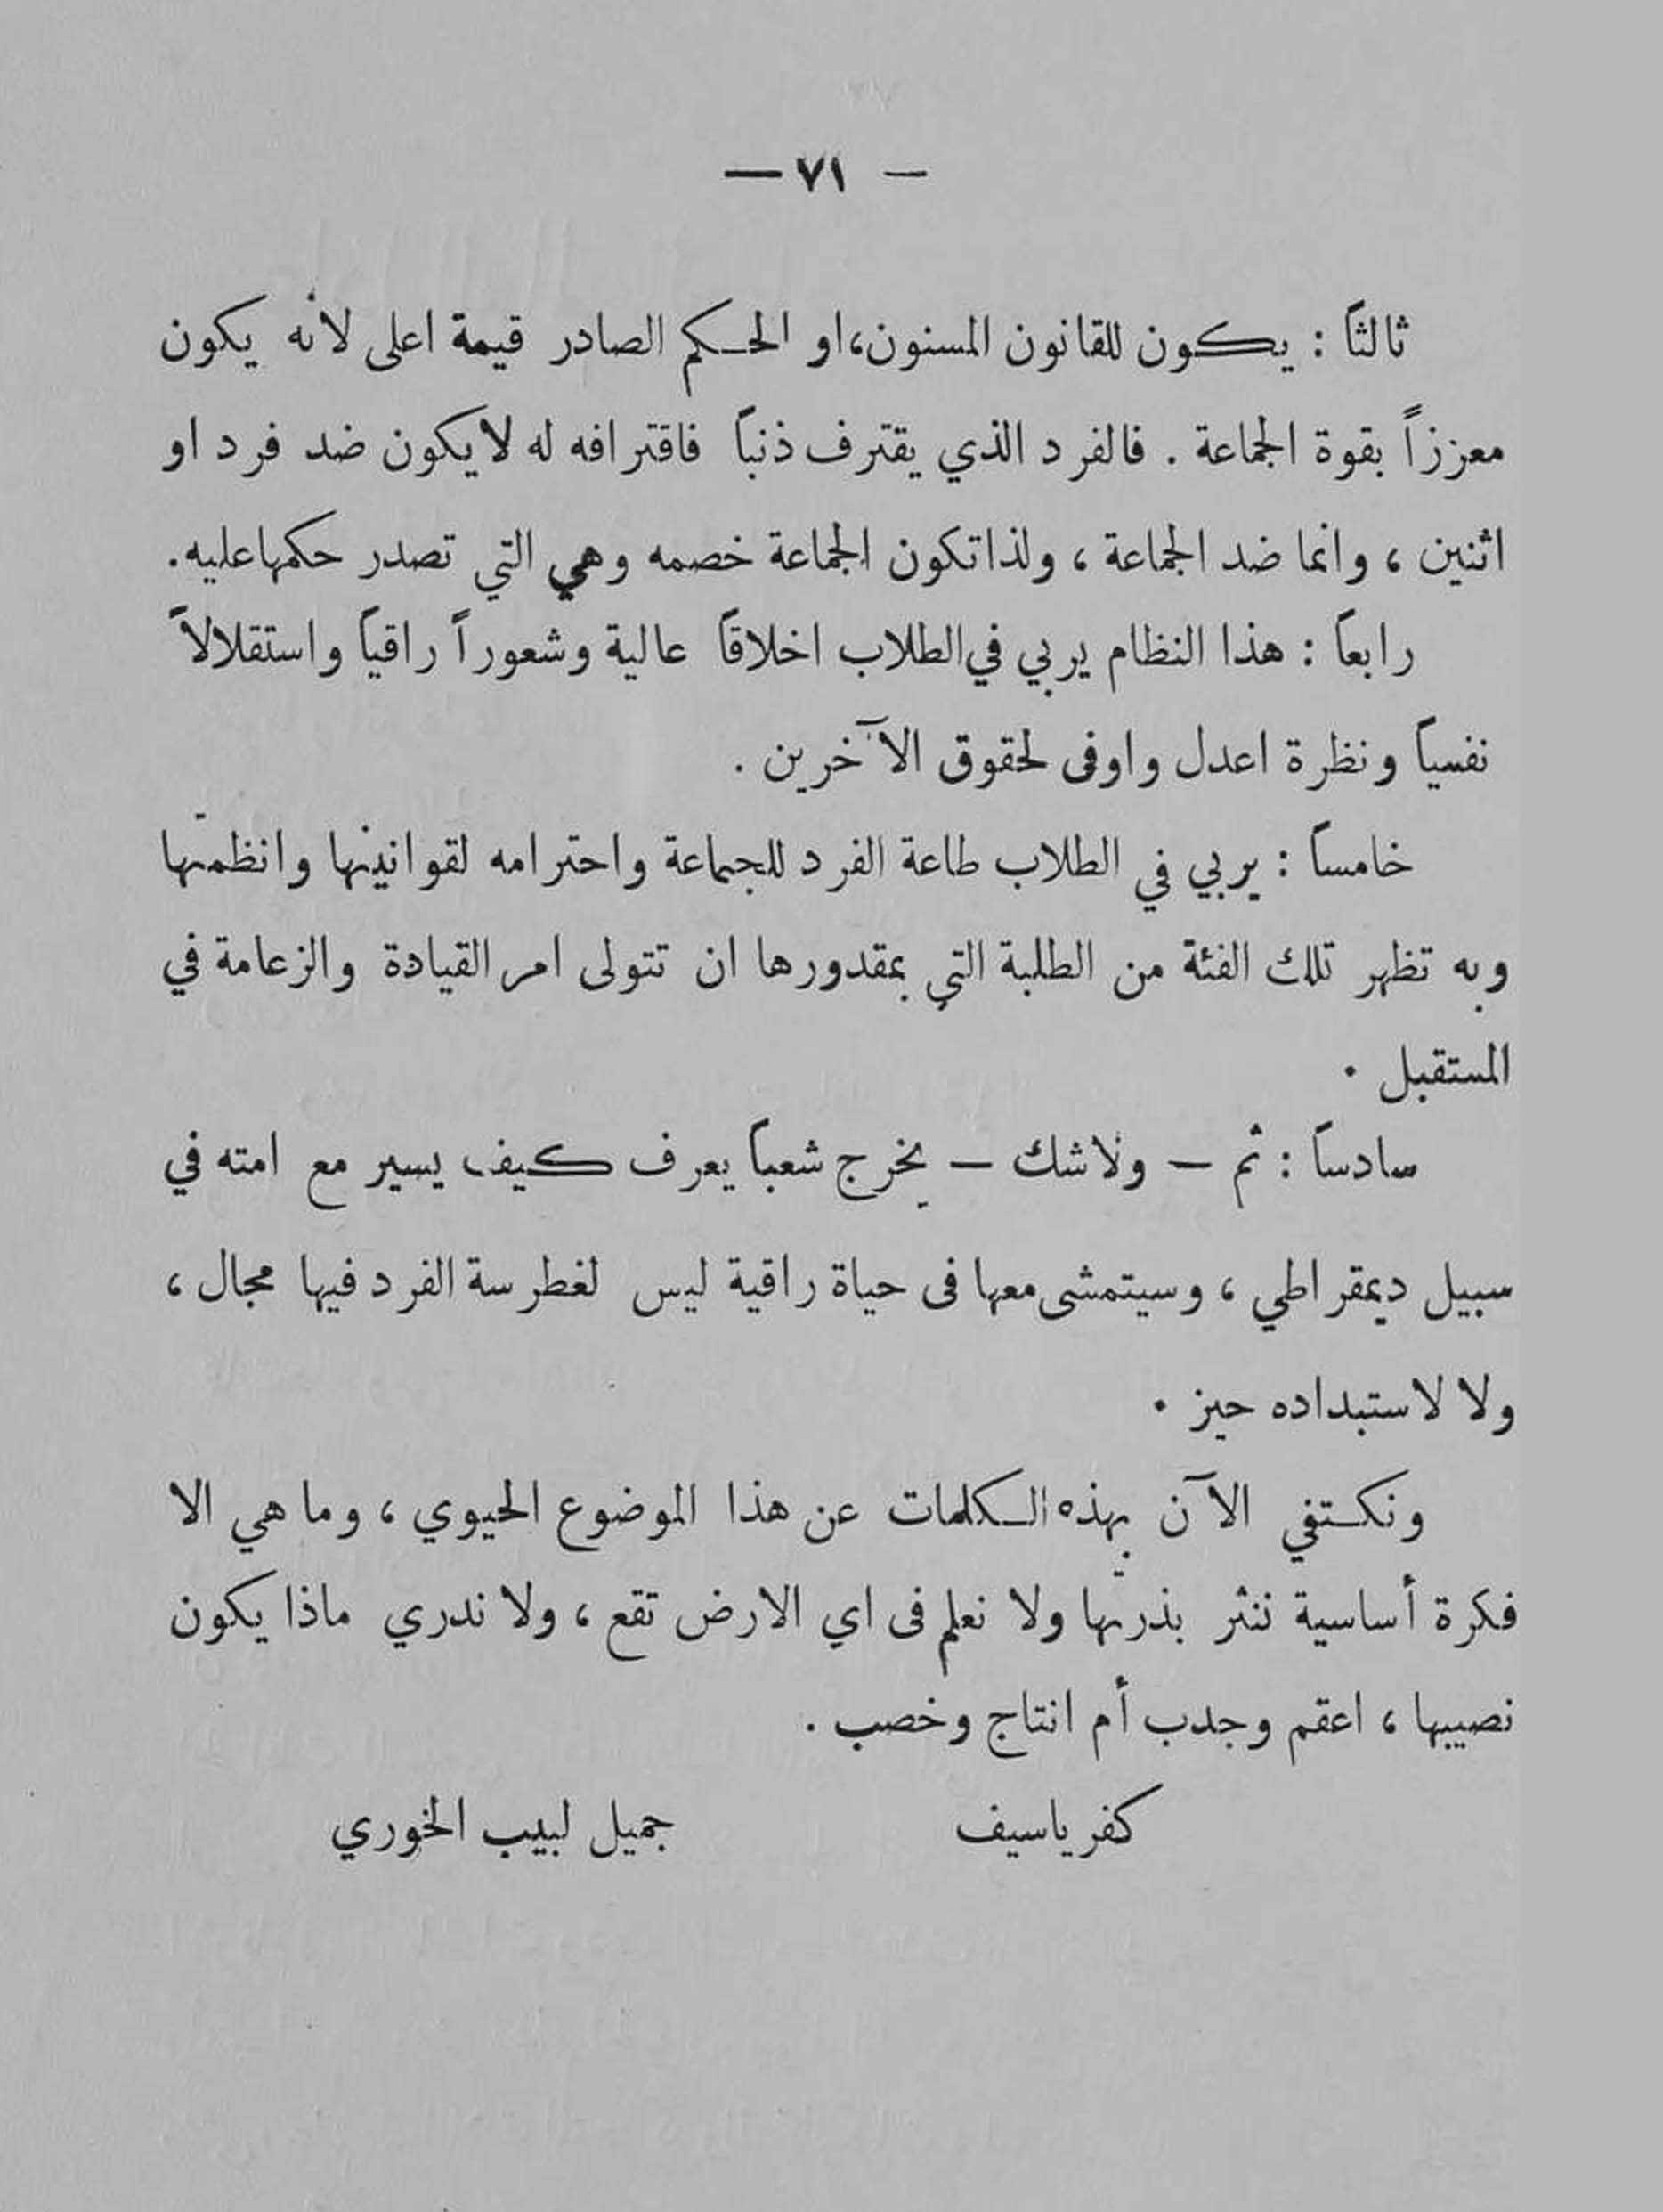 — ٧١ —
ثالثاً : يكون للقانون المسنون، او الحكم الصادر قيمة اعلى لانه يكون
معززاً بقوة الجماعة . فالفرد الذي يقترف ذنباً فاقترافه له لا يكون ضد فرد او
اثنين ، وانما ضد الجماعة ، ولذا تكون الجماعة خصمه وهي التي تصدر حكمها عليه.
رابعاً : هذا النظام يربي في الطلاب اخلاقاً عالية وشعوراً راقياً واستقلالاً
نفسياً ونظرة اعدل واوفى لحقوق الآخرين .
خامساً : يربي في الطلاب طاعة الفرد للجماعة واحترامه لقوانينها وانظمتها
وبه تظهر تلك الفئة من الطلبة التي بمقدورها ان تتولى امر القيادة والزعامة في
المستقبل .
سادساً : ثم — ولا شك — يخرج شعباً يعرف كيف يسير مع امته في
سبيل ديمقراطي ، وسيتمشى معها فى حياة راقية ليس لغطرسة الفرد فيها مجال ،
ولا لاستبداده حيز .
ونكتفي الآن بهذه الكلمات عن هذا الموضوع الحيوي ، وما هي الا
فكرة أساسية ننثر بذرتها ولا نعلم فى اي الارض تقع ، ولا ندري ماذا يكون
نصيبها ، اعقم وجدب أم انتاج وخصب .
كفر ياسيف جميل لبيب الخوري